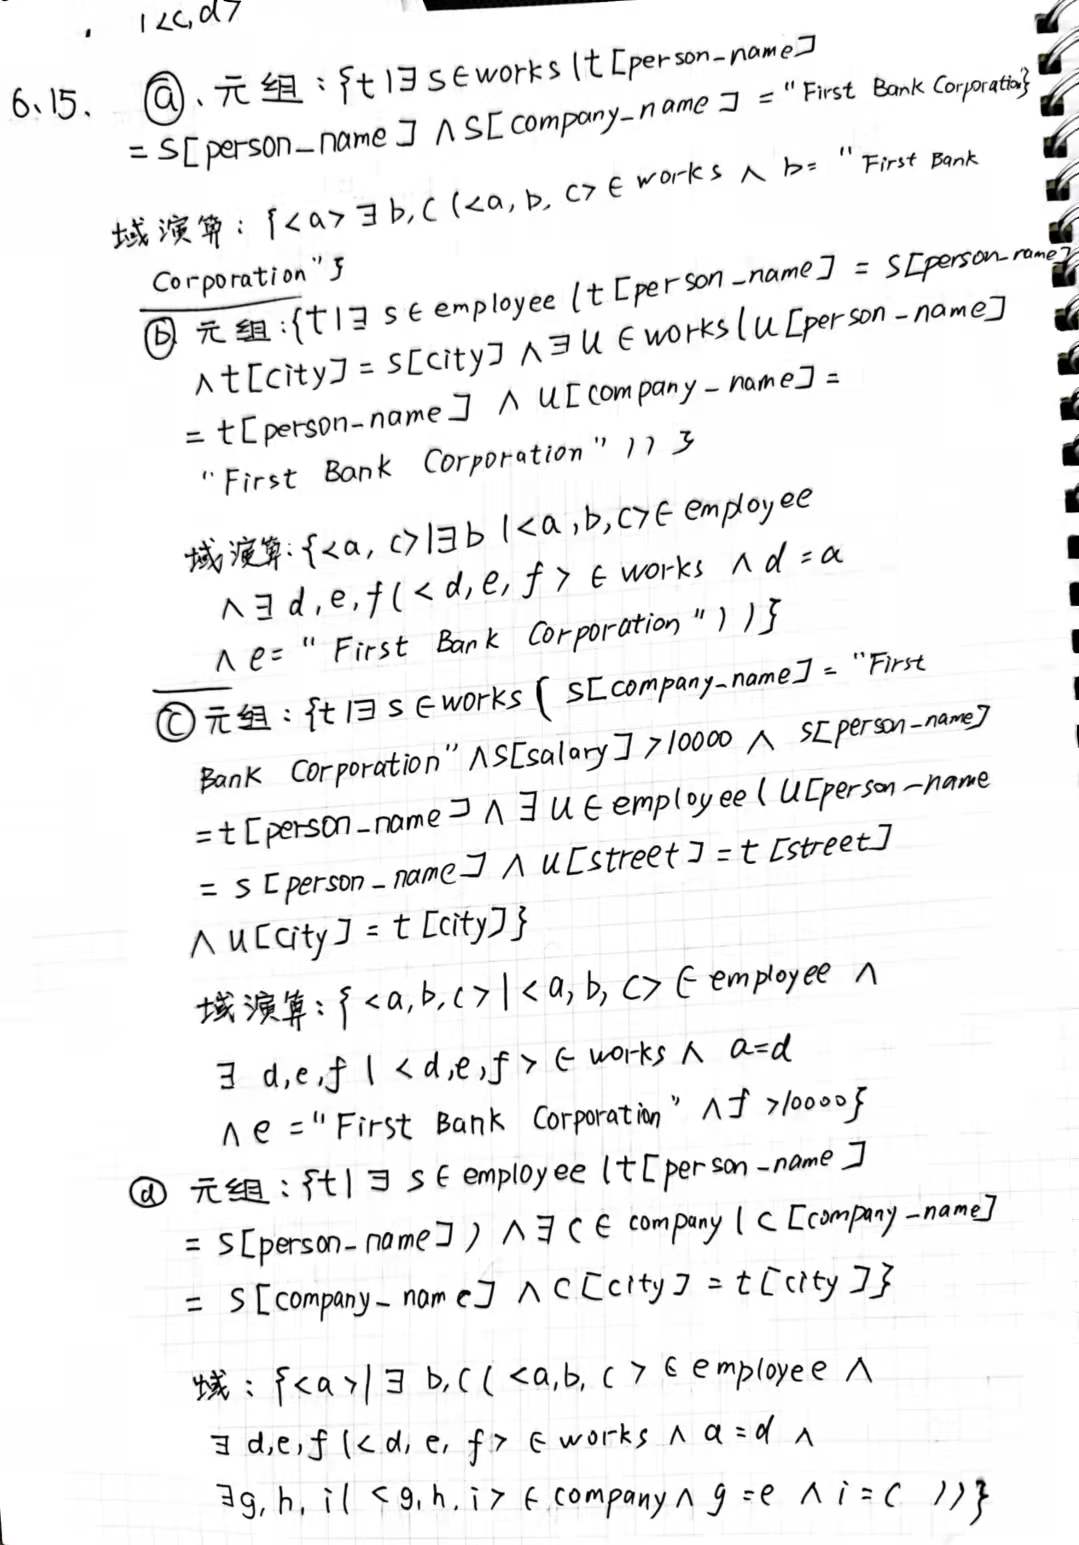 1<c,d>
6、15、 ⓐ、元组：{t|∃s∈works(t[person-name]
= s[person-name] ∧ s[company-name] = "First Bank Corporation}
域演算：{<a>∃b,c(<a,b,c>∈works ∧ b= "First Bank
Corporation"}
ⓑ 元组：{t|∃s∈employee(t[person-name] = s[person-name]
∧t[city] = s[city] ∧∃u∈works(u[person-name]
= t[person-name] ∧ u[company-name] =
"First Bank Corporation"))}
域演算：{<a,c>|∃b(<a,b,c>∈employee
∧∃d,e,f(<d,e,f>∈works ∧d=a
∧e="First Bank Corporation"))}
ⓒ 元组：{t|∃s∈works(s[company-name] = "First
Bank Corporation"∧s[salary]>10000 ∧ s[person-name]
=t[person-name] ∧∃u∈employee(u[person-name
= s[person-name] ∧u[street] = t[street]
∧u[city] = t[city]}
域演算：{<a,b,c>|<a,b,c>∈employee ∧
∃d,e,f(<d,e,f>∈works ∧ a=d
∧e="First Bank Corporation" ∧f>10000}
ⓓ 元组：{t|∃s∈employee(t[person-name]
= s[person-name]) ∧∃c∈company(c[company-name]
= s[company-name] ∧c[city] = t[city]}
域：{<a>|∃b,c(<a,b,c>∈employee ∧
∃d,e,f(<d,e,f>∈works ∧a=d ∧
∃g,h,i(<g,h,i>∈company∧g=e ∧i=c))}